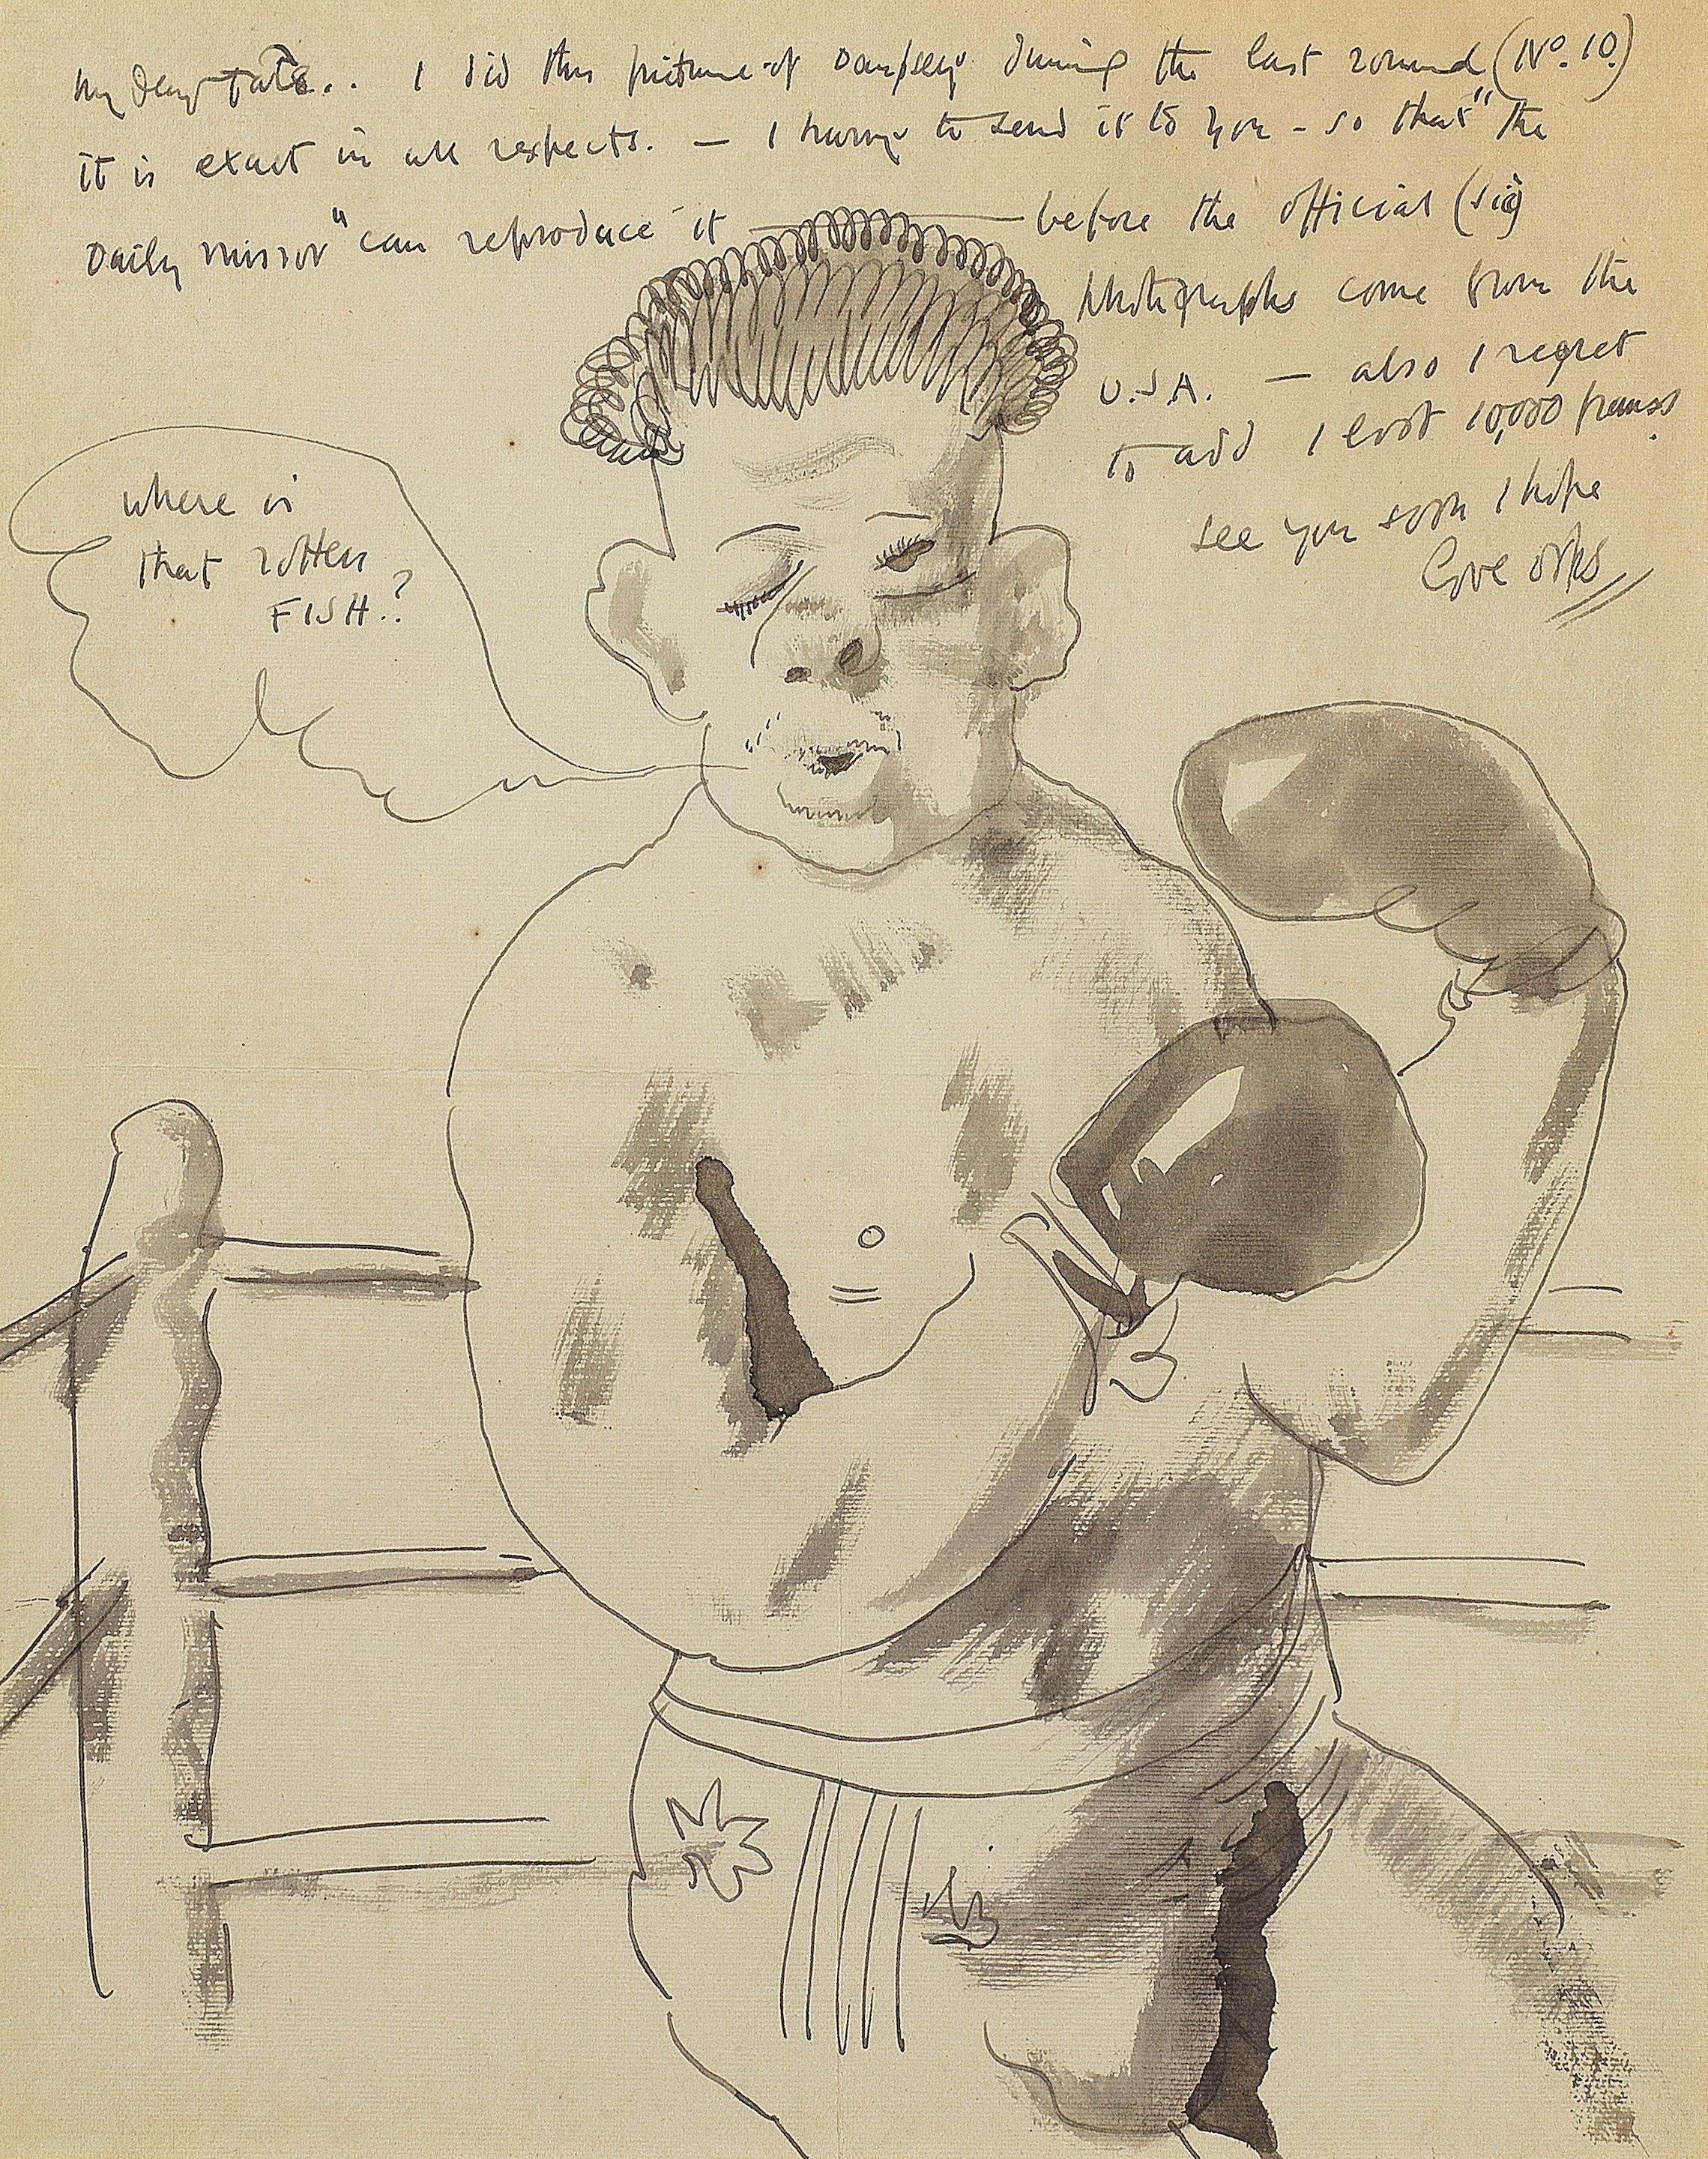 My dear Tats.. I did this picture of Dempsey during the last round (No. 10.)
it is exact in all respects. — I hurry to send it to you - so that "the
Daily Mirror" can reproduce it — before the official (sig)
photographs come from the
U.S.A. — also I regret
to add I lost 10,000 francs.
see you soon I hope
love
where is
that rotten
FISH..?